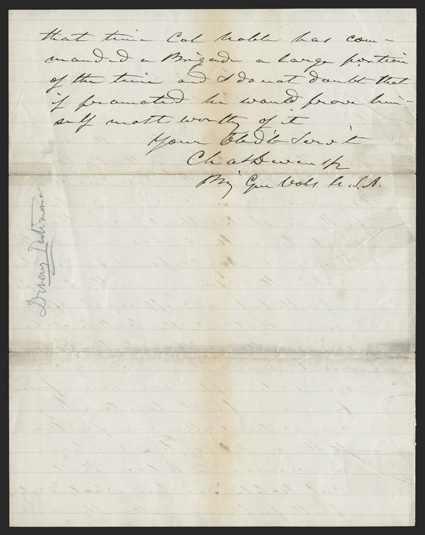 that time Col Noble has com-
manded a Brigade a large portion
of the time and I do not doubt that
if promoted he would prove him-
self most worthy of it
Your Obed't Serv't
Chas Devens Jr
Brig Gen Vols U.S.A.